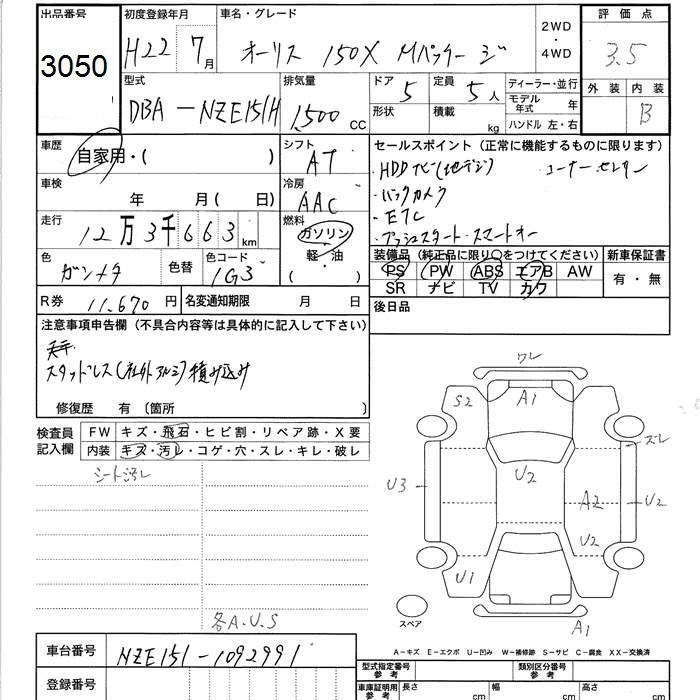 出品番号 初度登録年月 車名・グレード 2WD・4WD 評価点
3050 H22 7月 オーリス 150X Mパッケージ 3.5
型式 排気量 ドア 定員 ディーラー・並行 外装 内装
DBA-NZE151H 1,500cc 5 5人 モデル年式 年 B
形状 積載 kg ハンドル 左・右
車歴 自家用・( ) シフト AT
セールスポイント(正常に機能するものに限ります)
・HDDナビ(地デジ) コーナーセンサー
・バックカメラ
・ETC
・プッシュスタート・スマートキー
車検 年 月( 日) 冷房 AAC
走行 12万3千663km 燃料 ガソリン・軽・油( )
色 ガンメタ 色替 色コード 1G3
装備品(純正品に限り○をつけてください) 新車保証書
PS PW ABS エアB AW 有・無
SR ナビ TV カワ
R券 11,670円 名変通知期限 月 日 後日品
注意事項申告欄(不具合内容等は具体的に記入して下さい)
スタッドレス(社外アルミ)積み込み
修復歴 有〔箇所 〕
検査員記入欄 FW キズ・飛石・ヒビ割・リペア跡・X要
内装 キズ・汚レ・コゲ・穴・スレ・キレ・破レ
シート汚レ
各A.U.S
ワレ
S2 A1
ズレ
U3 U2 A2 U2
U2
U1
スペア A1
A-キズ E-エクボ U-凹み W-補修跡 S-サビ C-腐食 XX-交換済
車台番号 NZE151-1092991
登録番号
型式指定番号 参考 類別区分番号
車庫証明用 参考 長さ cm 幅 cm 高さ cm